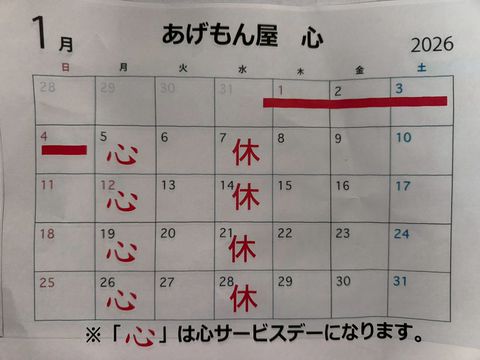 1月 あげもん屋 心 2026
日 月 火 水 木 金 土
28 29 30 31 1 2 3
4 5 心 6 7 休 8 9 10
11 12 心 13 14 休 15 16 17
18 19 心 20 21 休 22 23 24
25 26 心 27 28 休 29 30 31
※「心」は心サービスデーになります。